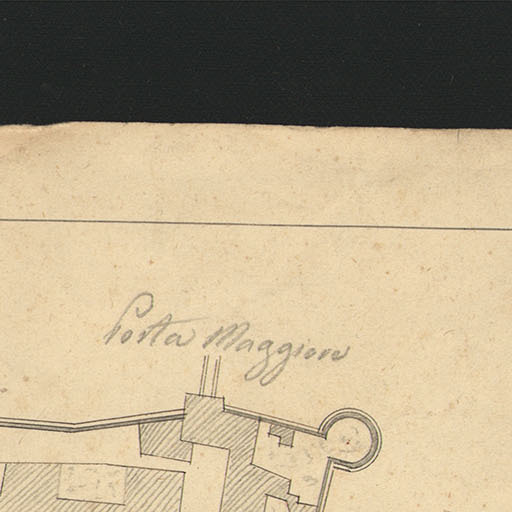 Porta Maggiore